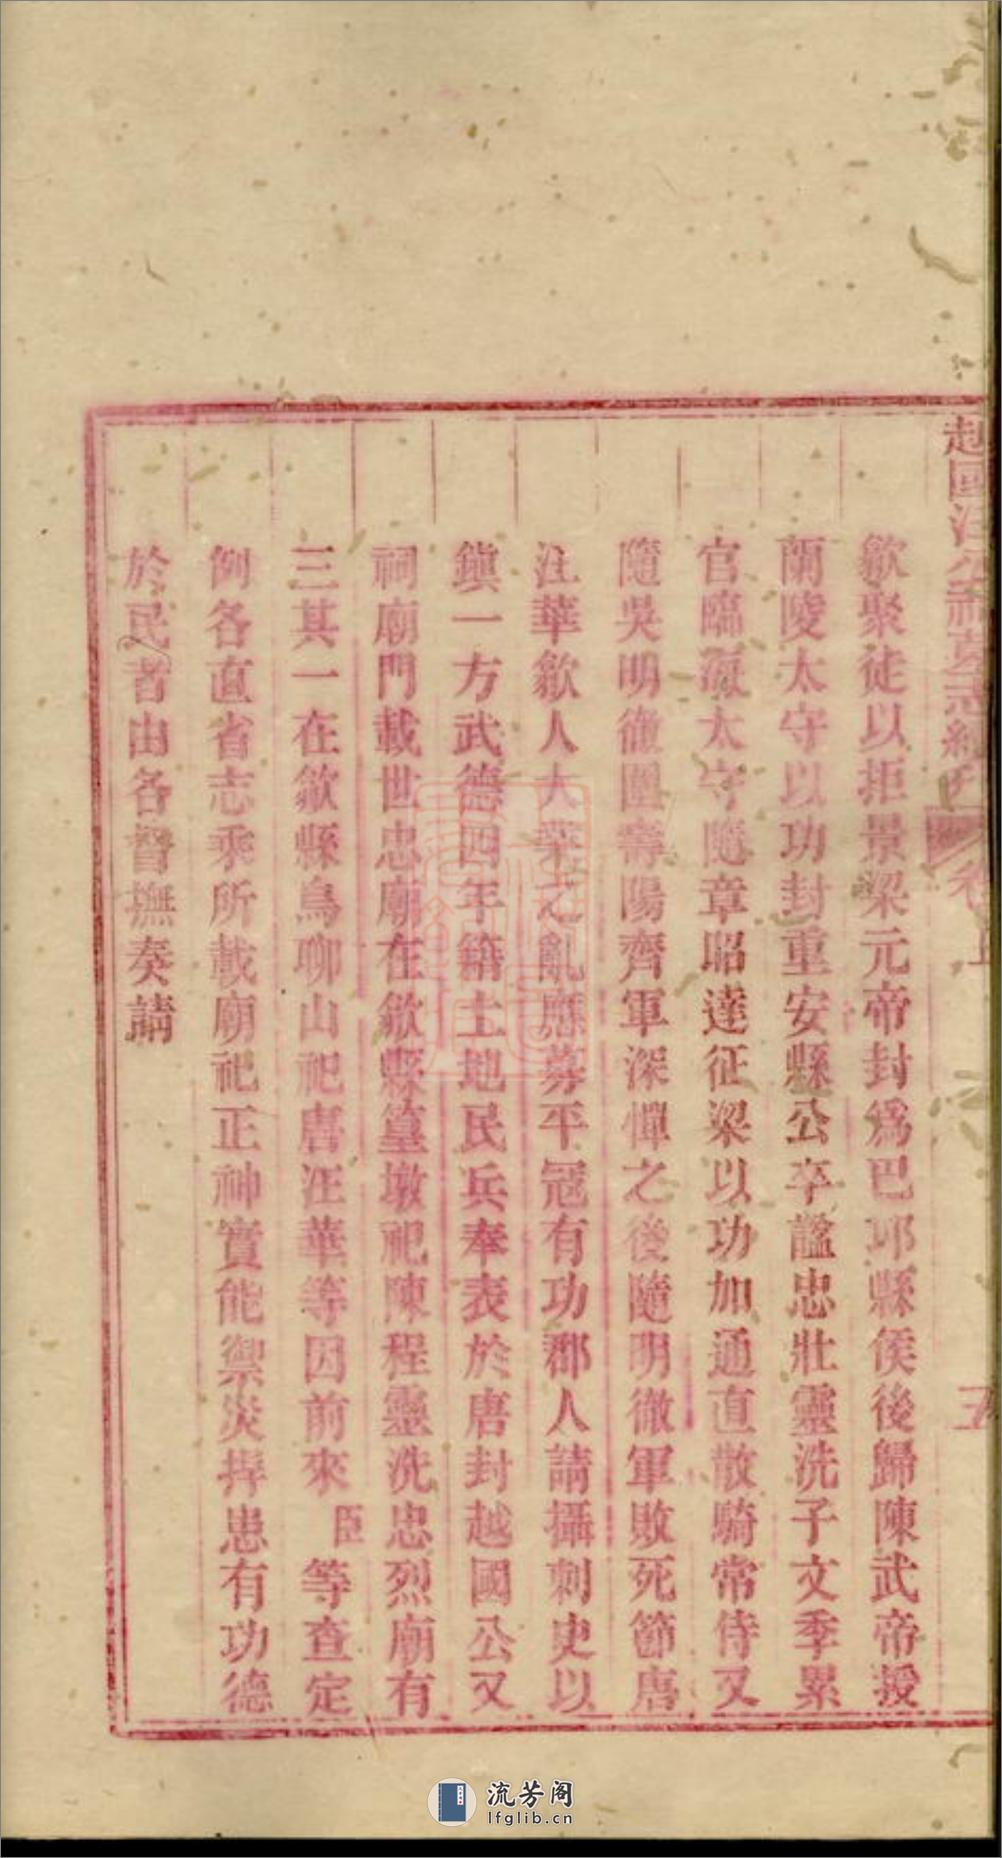 越國汪公祠墓志續刊 卷上 五
歙聚徒以拒景梁元帝封為巴邱縣侯後歸陳武帝授
蘭陵太守以功封重安縣公卒謚忠壯靈洗子文季累
官臨海太守隨章昭達征梁以功加通直散騎常侍又
隨吳明徹圍壽陽齊軍深憚之後隨明徹軍敗死節唐
汪華歙人大業之亂應募平寇有功郡人請攝刺史以
鎮一方武德四年籍土地民兵奉表於唐封越國公又
祠廟門載世忠廟在歙縣篁墩祀陳程靈洗忠烈廟有
三其一在歙縣烏聊山祀唐汪華等因前來臣等查定
例各直省志乘所載廟祀正神實能禦災捍患有功德
於民者由各督撫奏請
流芳阁
lfglib.cn